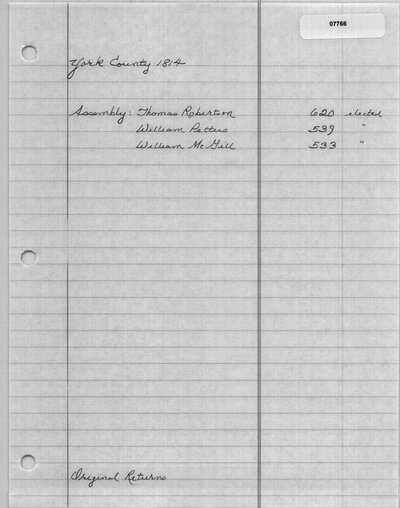 07766
York County 1814
Assembly: Thomas Robertson 620 elected
William Pettus 539 "
William McGill 533 "
Original Returns